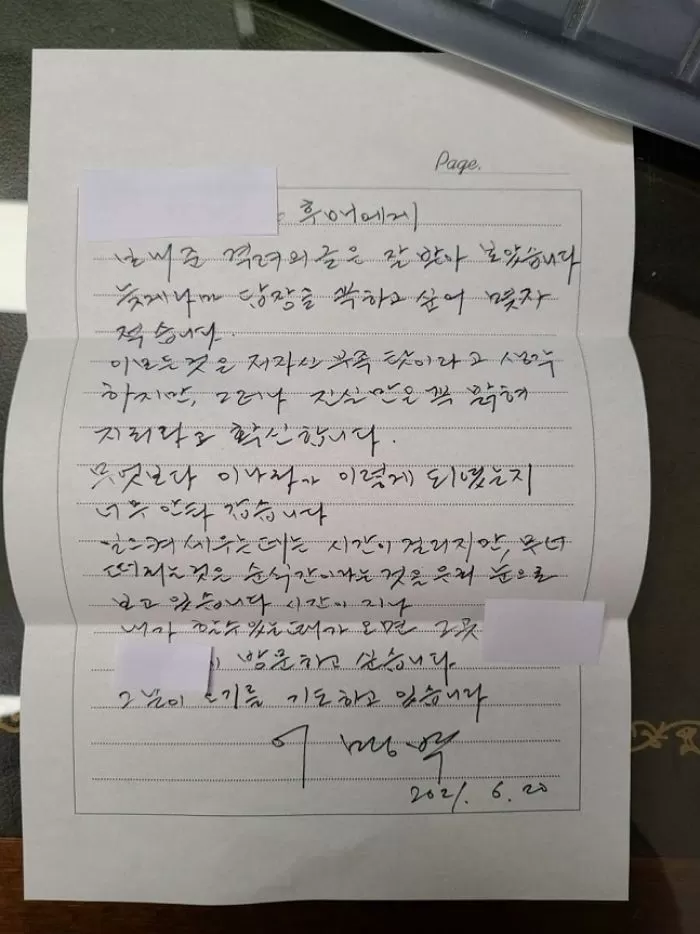 Page.
후배에게
보내준 격려의 글은 잘 받아 보았습니다
늦게나마 답장을 꼭하고 싶어 몇자
적습니다.
이모든것은 저자신 부족 탓이라고 생각
하지만, 그러나 진실만은 꼭 밝혀
지리라고 확신합니다.
무엇보다 이나라가 이렇게 되였는지
너무 안타 깝습니다
일으켜 세우는데는 시간이 걸리지만, 무너
떠리는것은 순식간이라는것을 우리 눈으로
보고 있습니다 시간이 지나
내가 할수있는때가 오면 그곳
방문하고 싶습니다
그날이 오기를 기도하고 있습니다
이명박
2021. 6. 20